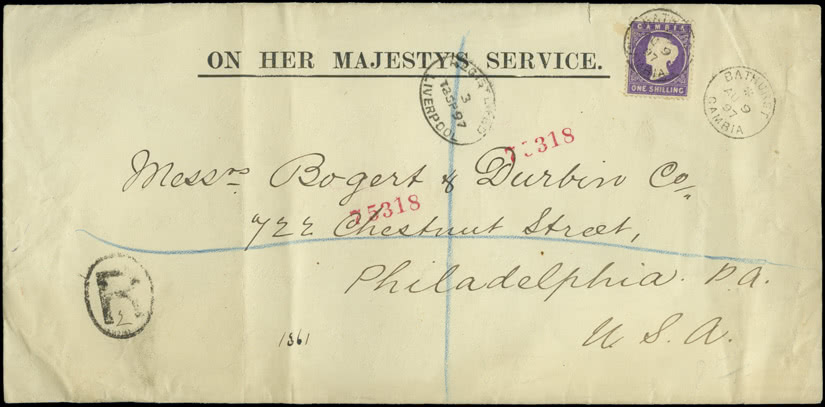 ON HER MAJESTY'S SERVICE.
GAMBIA
ONE SHILLING
BATHURST
AU 9
97
GAMBIA
3
13SP97
LIVERPOOL
75318
Messrs Bogert & Durbin Co
75318
722 Chestnut Street,
Philadelphia. P.A.
U. S. A.
R
1361